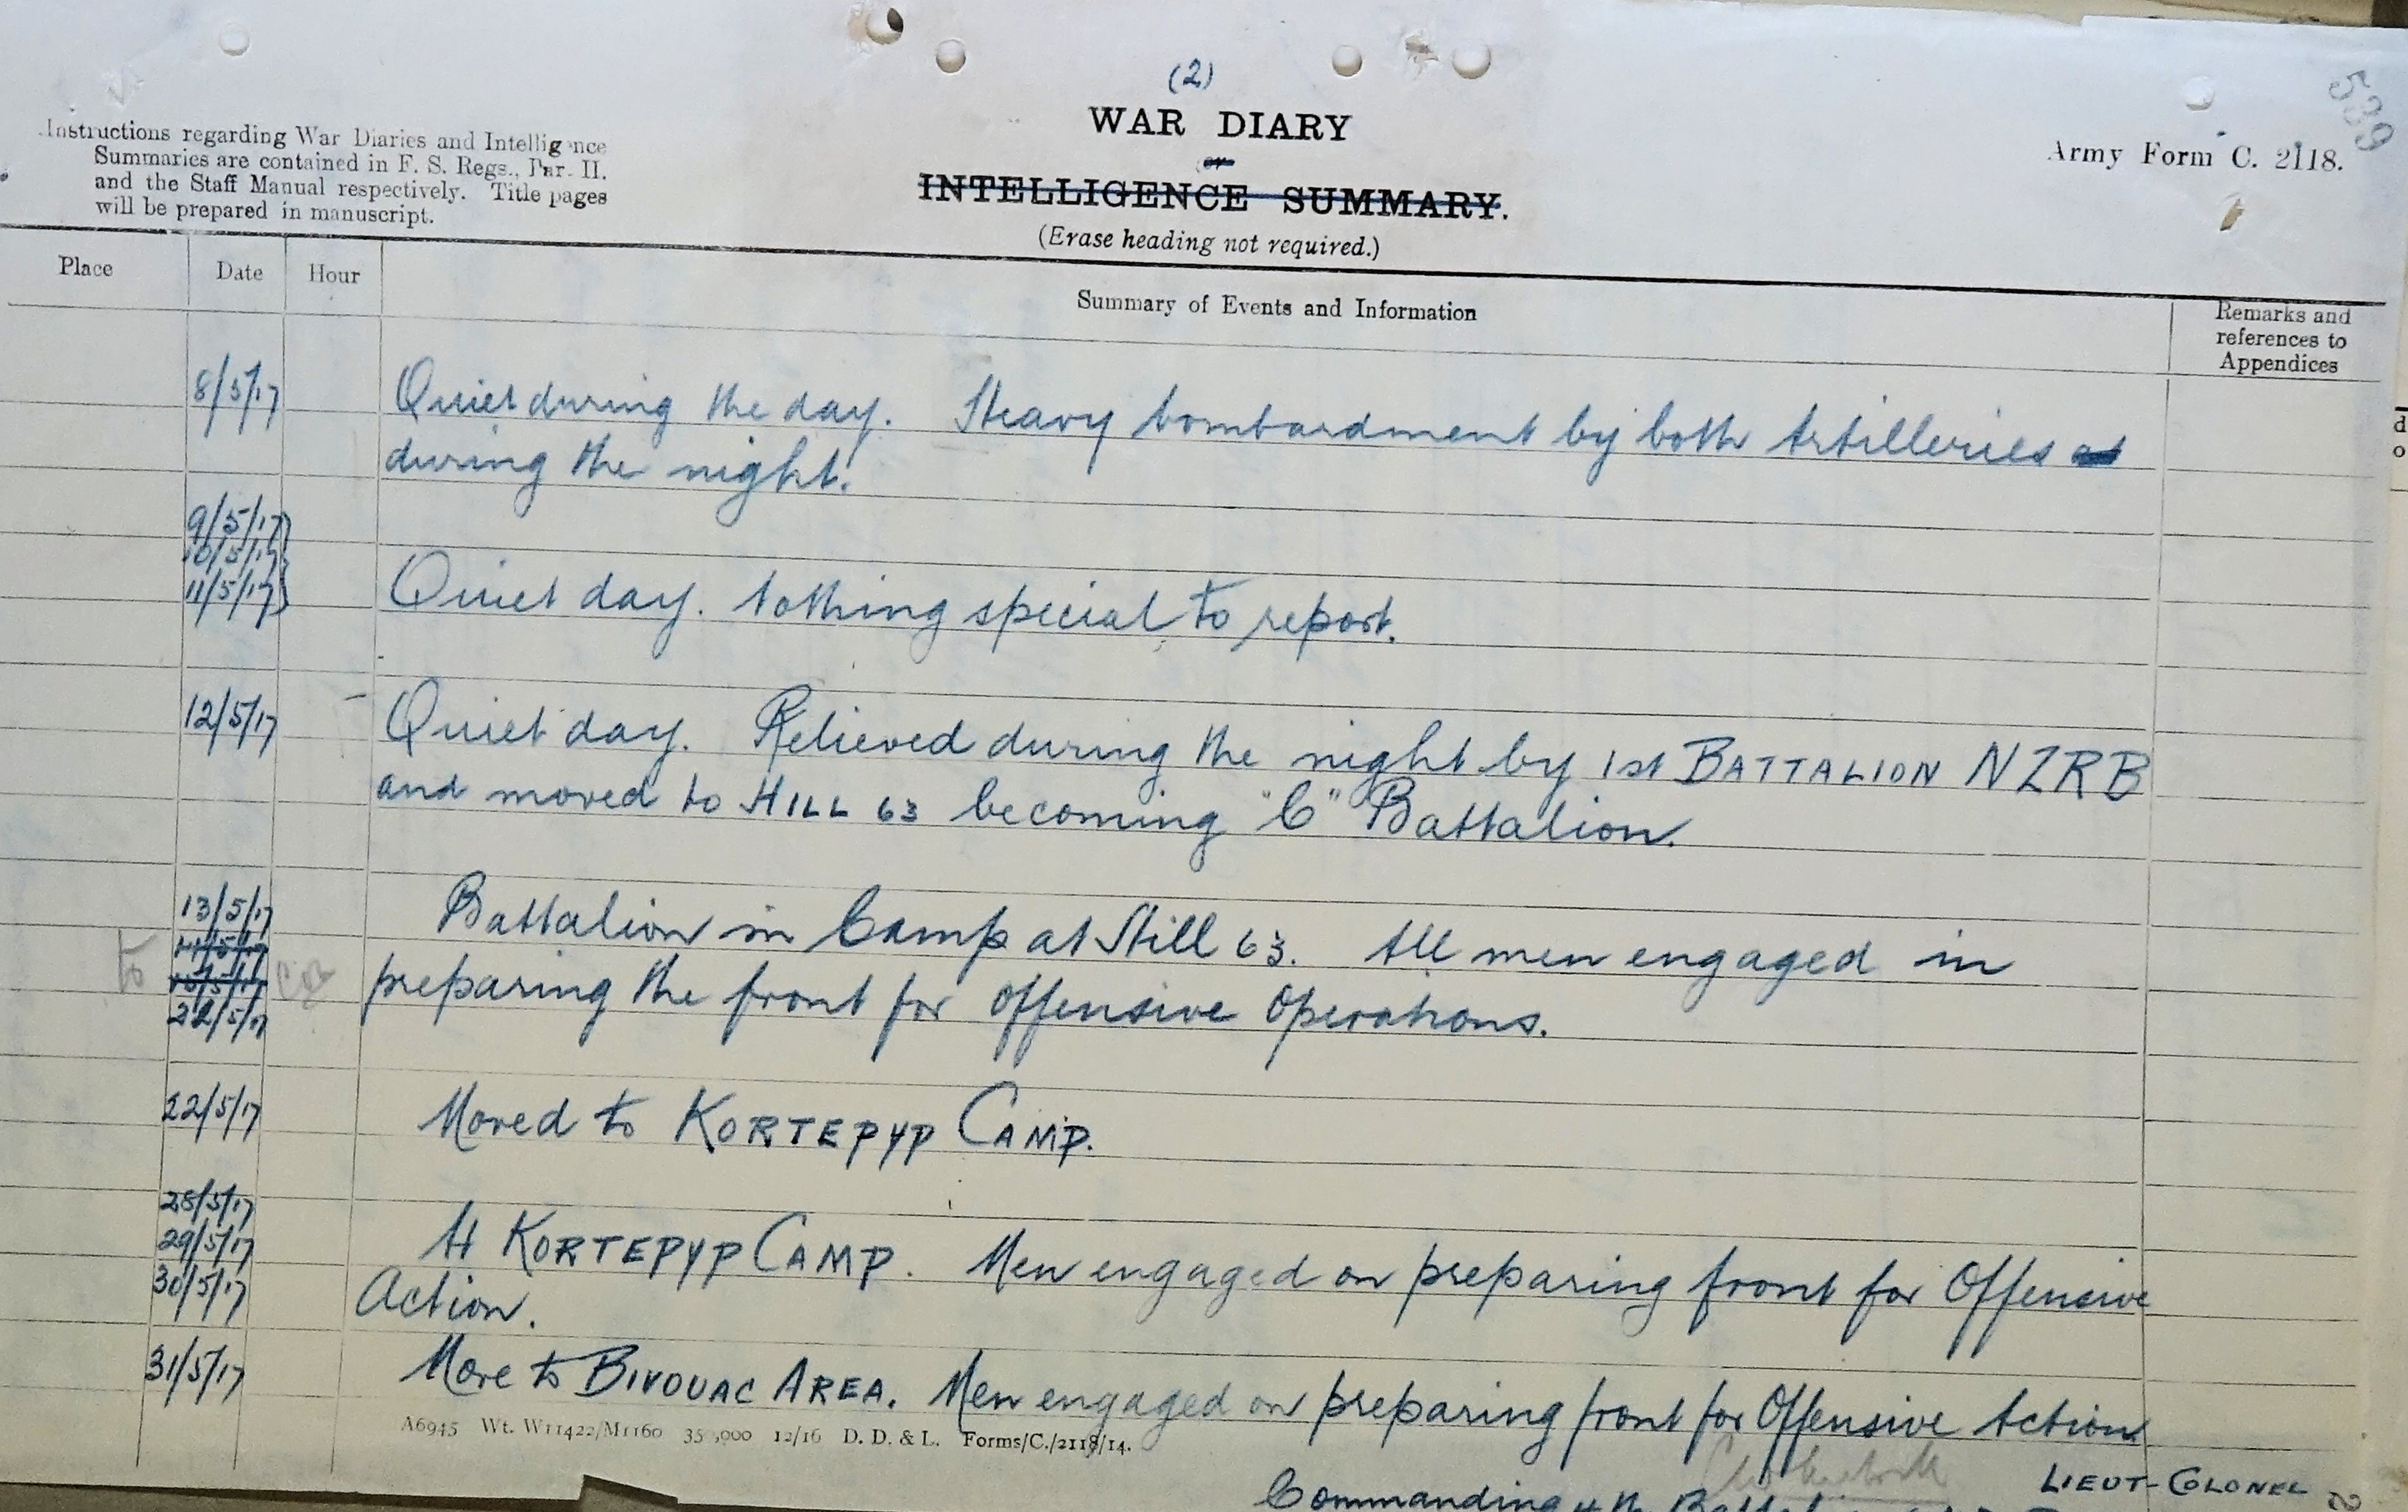 (2)
WAR DIARY
or
INTELLIGENCE SUMMARY.
(Erase heading not required.)
Instructions regarding War Diaries and Intelligence
Summaries are contained in F. S. Regs., Par. II.
and the Staff Manual respectively. Title pages
will be prepared in manuscript.
Army Form C. 2118.
589
Place Date Hour Summary of Events and Information Remarks and
references to
Appendices
8/5/17 Quiet during the day. Heavy bombardment by both Artilleries
during the night.
9/5/17
10/5/17
11/5/17 Quiet day. Nothing special to report.
12/5/17 Quiet day. Relieved during the night by 1st BATTALION NZRB
and moved to HILL 63 becoming "C" Battalion.
13/5/17 Battalion in Camp at Hill 63. All men engaged in
14/5/17
to 15/5/17 preparing the front for Offensive Operations.
22/5/17
22/5/17 Moved to KORTEPYP CAMP.
28/5/17
29/5/17 At KORTEPYP CAMP. Men engaged on preparing front for Offensive
30/5/17 Action.
31/5/17 Move to BIVOUAC AREA. Men engaged on preparing front for Offensive Action
A6945 Wt. W11422/M1160 35 ,000 12/16 D. D. & L. Forms/C./2118/14.
LIEUT-COLONEL
Commanding 4th Battalion